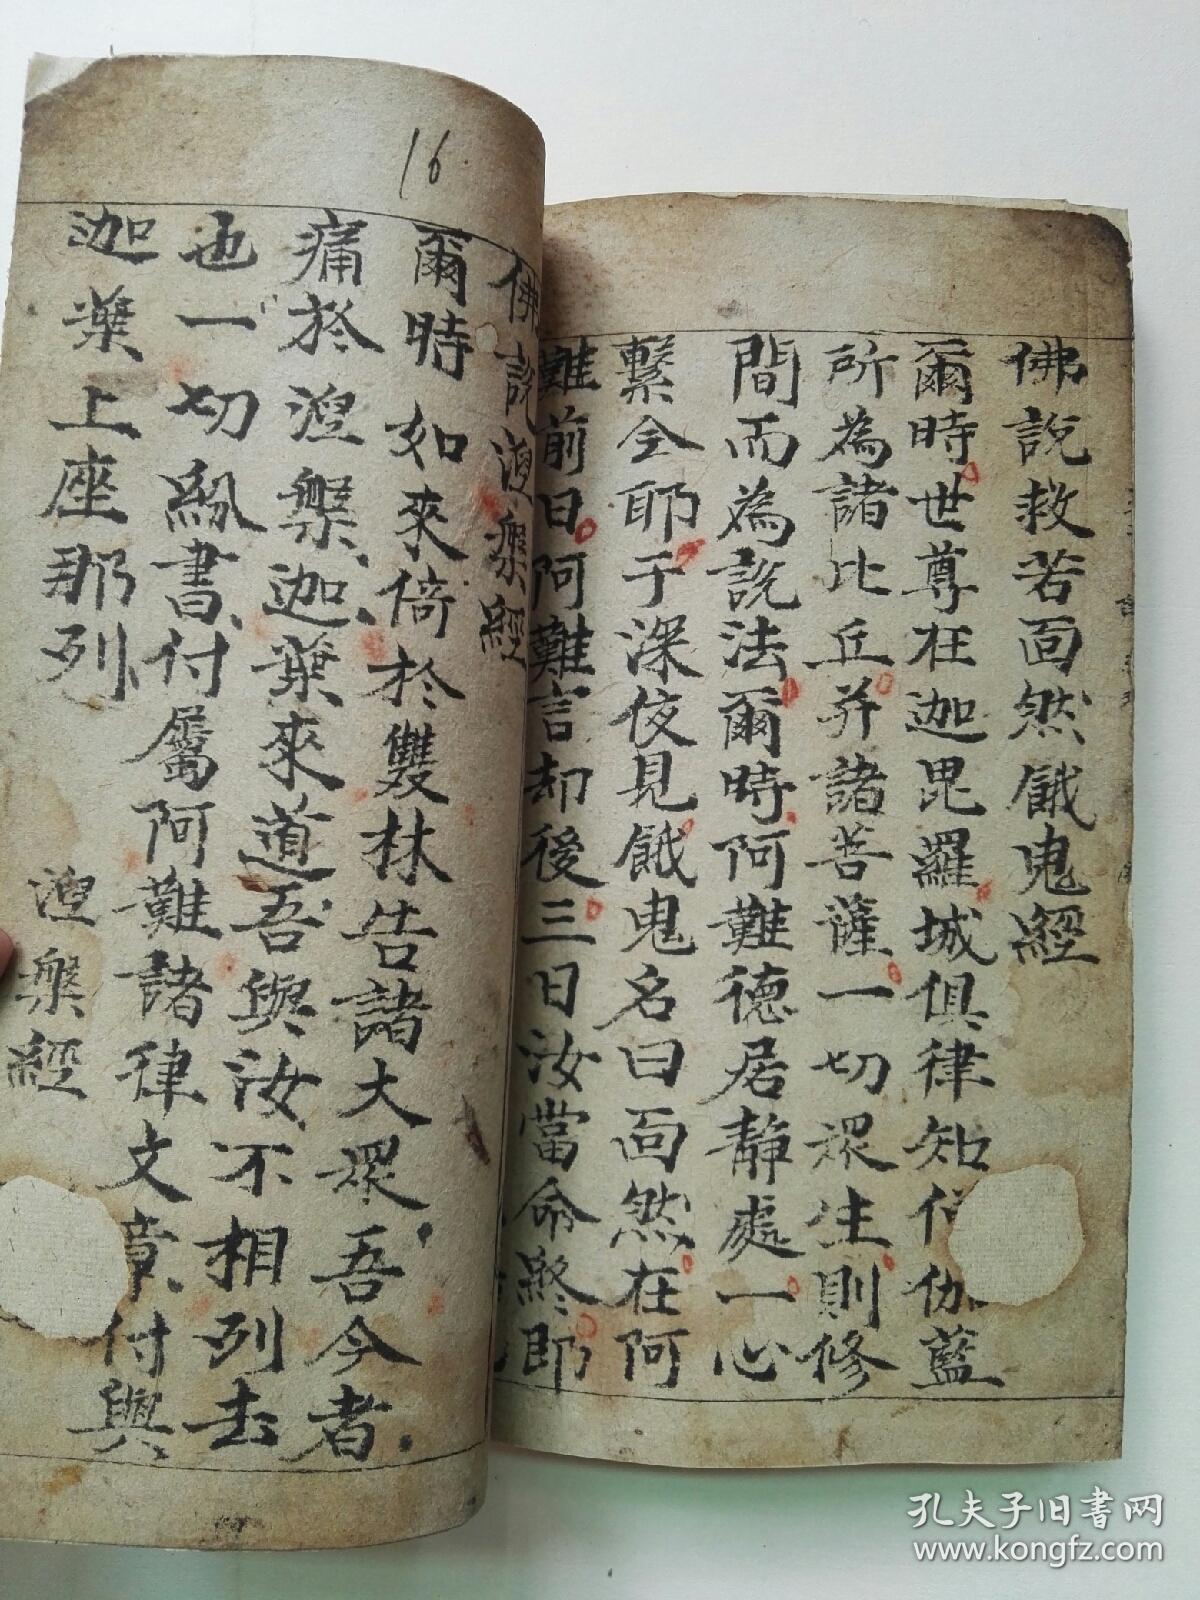 佛說救苦面然餓鬼經
爾時世尊在迦毘羅城俱律知伽藍
所為諸比丘并諸菩薩一切眾生則修
間而為說法爾時阿難德居靜處一心
繫念耶于深夜見餓鬼名曰面然在阿
難前曰阿難言却後三日汝當命終即
16
佛說涅槃經
爾時如來倚於雙林告諸大眾吾今者
痛於涅槃迦葉來道吾與汝不相列去
也一切紙書付屬阿難諸律文章付與
迦葉上座那列
涅槃經
孔夫子旧书网
www.kongfz.com